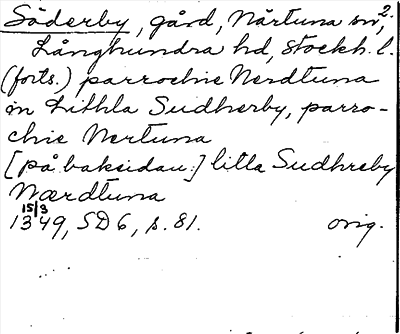 Söderby, gård, Närtuna sn, 2.
Långhundra hd, Stockh. l.
(forts.) parrochie Nerdtuna
in Lithla Sudherby, parro-
chie Nertuna
[på baksidan:] litla Sudhreby
Nærdtuna
15/3
1349, SD 6, s. 81. orig.